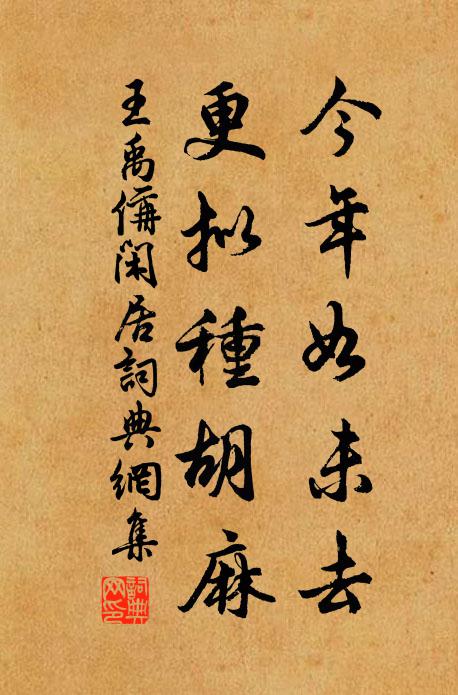 今年如未去
更拟種胡麻
王禹偁閑居詞典網集
詞典网印